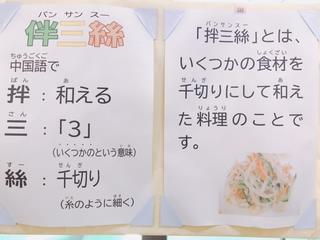 バン サン スー
伴三絲
ちゅうごくご
中国語で
ばん あ
拌：和える
さん
三：「3」
（いくつかのという意味）
すー せんぎ
絲：千切り
（糸のように細く）
バンサンスー
「拌三絲」とは、
しょくざい
いくつかの食材を
せんぎ あ
千切りにして和え
りょうり
た料理のことで
す。